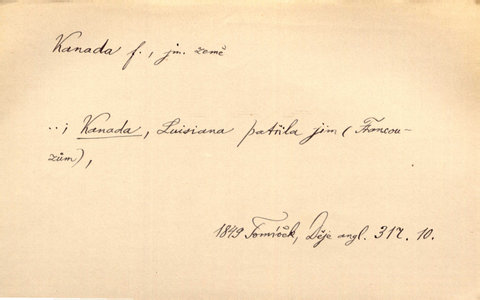 Kanada f., jm. země
..; Kanada, Luisiana patřila jim (Francou-
zům),
1849 Tomíček, Děje angl. 317. 10.